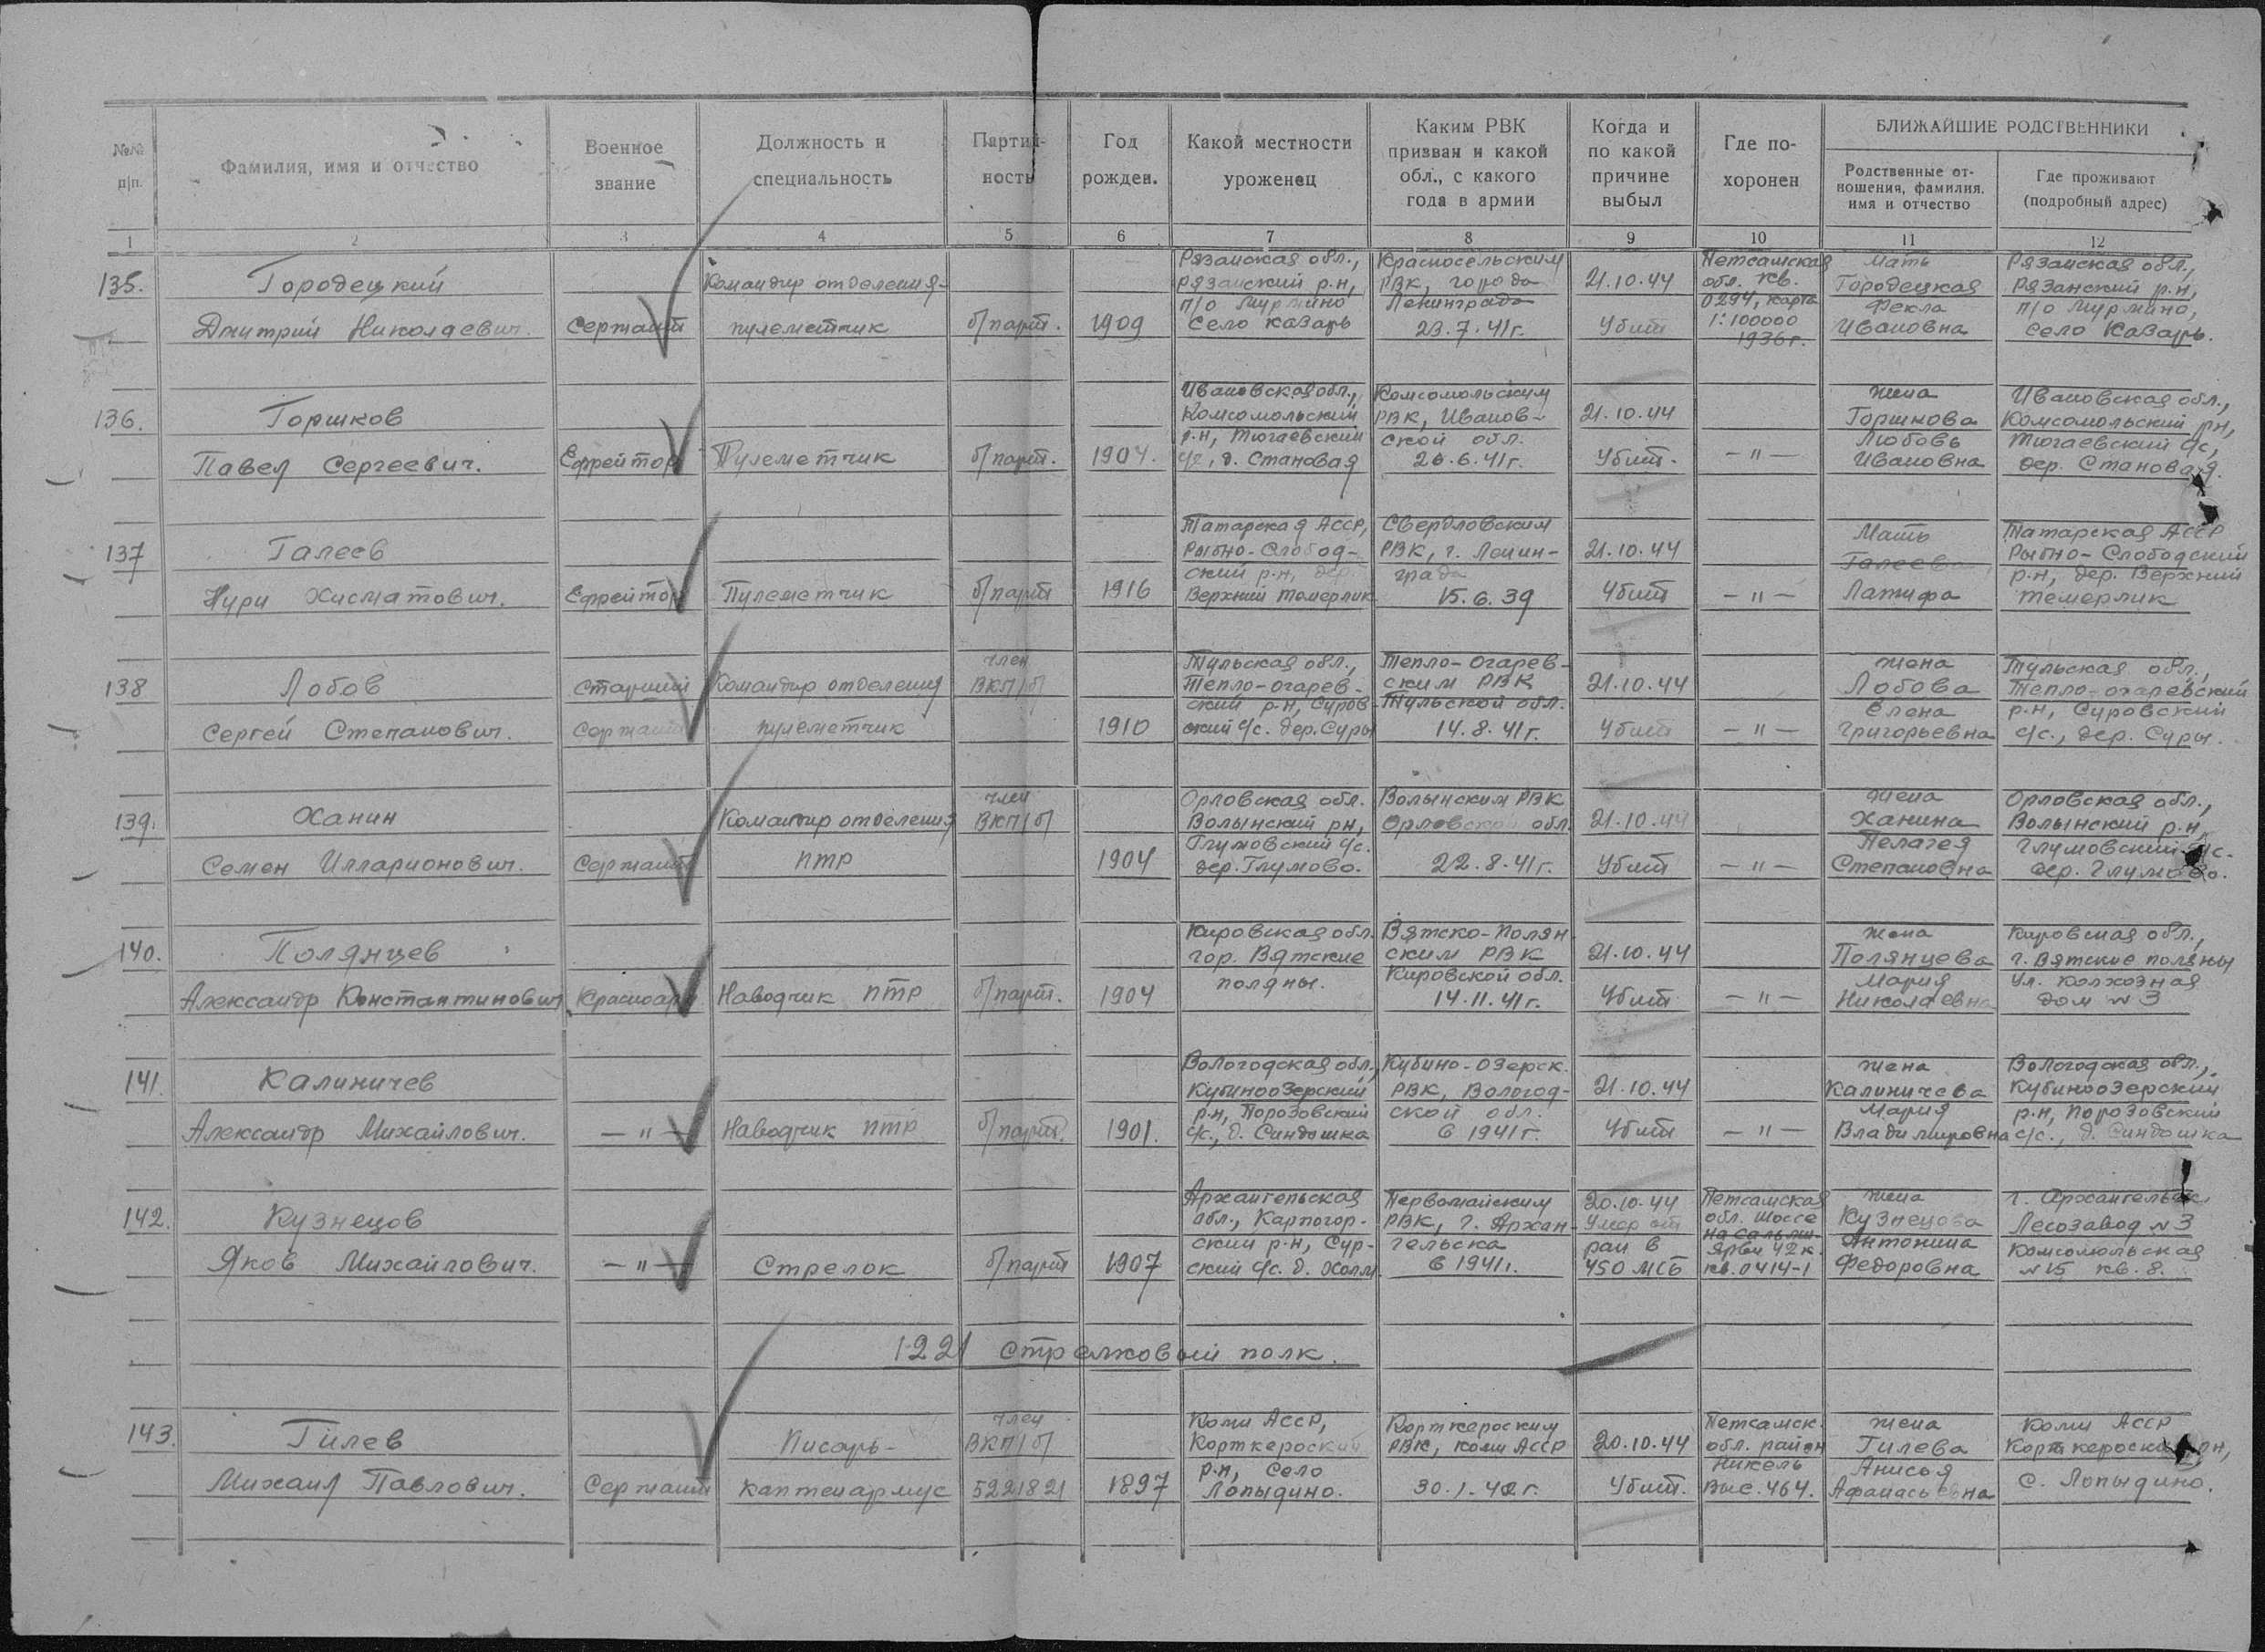 №№ п/п.
Фамилия, имя и отчество
Военное звание
Должность и специальность
Партий-ность
Год рожден.
Какой местности уроженец
Каким РВК призван и какой обл., с какого года в армии
Когда и по какой причине выбыл
Где по-хоронен
БЛИЖАЙШИЕ РОДСТВЕННИКИ
Родственные от-ношения, фамилия, имя и отчество
Где проживают (подробный адрес)
1 2 3 4 5 6 7 8 9 10 11 12
135.
Городецкий
Дмитрий Николаевич.
Сержант
Командир отделения-
пулеметчик
б/парт.
1909
Рязанская обл.,
Рязанский р.н,
п/о Мурмино
село Казарь
Красносельским
РВК, города
Ленинграда
23.7.41г.
21.10.44
Убит
Петсамская
обл. кв.
0294, карта
1:100000
1936г.
Мать
Городецкая
Фекла
Ивановна
Рязанская обл.,
Рязанский р.н,
п/о Мурмино,
село Казарь.
136.
Горшков
Павел Сергеевич.
Ефрейтор
Пулеметчик
б/парт.
1904.
Ивановская обл.,
Комсомольский
р.н, Тюгаевский
с/с, д. Становая
Комсомольским
РВК, Иванов-
ской обл.
26.6.41г.
21.10.44
Убит.
-"-
Жена
Горшкова
Любовь
Ивановна
Ивановская обл.,
Комсомольский рн,
Тюгаевский с/с,
дер. Становая.
137
Галеев
Нури Хисматович.
Ефрейтор
Пулеметчик
б/парт
1916
Татарская АССР,
Рыбно-Слобод-
ский р.н, дер.
Верхний Томерлик
Свердловским
РВК, г. Ленин-
града
15.6.39
21.10.44
Убит
-"-
Мать
Галеева
Латифа
Татарская АССР
Рыбно-Слободский
р.н, дер. Верхний
Темерлик
138
Лобов
Сергей Степанович.
Старший
Сержант
Командир отделения
пулеметчик
член
ВКП/б/
1910
Тульская обл.,
Тепло-Огарев-
ский р.н, Суров-
ский с/с. дер. Суры
Тепло-Огарев-
ским РВК
Тульской обл.
14.8.41г.
21.10.44
Убит
-"-
Жена
Лобова
Елена
Григорьевна
Тульская обл.,
Тепло-огаревский
р.н, Суровский
с/с., дер. Суры.
139.
Ханин
Семен Илларионович.
Сержант
Командир отделения
ПТР
член
ВКП/б/
1904
Орловская обл.
Волынский рн,
Глумовский с/с.
дер. Глумово.
Волынским РВК
Орловской обл.
22.8.41г.
21.10.44
Убит
-"-
Жена
Ханина
Пелагея
Степановна
Орловская обл.,
Волынский р.н,
Глумовский с/с.
дер. Глумово.
140.
Полянцев
Александр Константинович.
Красноарм.
Наводчик ПТР
б/парт.
1904
Кировская обл.
гор. Вятские
поляны.
Вятско-Полян.
ским РВК
Кировской обл.
14.11.41г.
21.10.44
Убит
-"-
Жена
Полянцева
Мария
Николаевна
Кировская обл.,
г. Вятские поляны
ул. Колхозная
дом № 3
141.
Калиничев
Александр Михайлович.
-"-
Наводчик ПТР
б/парт.
1901.
Вологодская обл.,
Кубиноозерский
р.н, Порозовский
с/с., д. Синдошка
Кубино-Озерск.
РВК, Вологод-
ской обл.
в 1941г.
21.10.44
Убит
-"-
Жена
Калиничева
Мария
Владимировна
Вологодская обл.,
Кубиноозерский
р.н, Порозовский
с/с., д. Синдошка
142.
Кузнецов
Яков Михайлович.
-"-
Стрелок
б/парт
1907
Архангельская
обл., Карпогор-
ский р.н, Сур-
ский с/с. д. Холм.
Первомайским
РВК, г. Архан-
гельска
в 1941г.
20.10.44
Умер от
ран в
450 МСБ
Петсамская
обл. шоссе
на Сальми-
ярви 42 к.
кв. 0414-1
Жена
Кузнецова
Антонина
Федоровна
г. Архангельск,
Лесозавод №3
Комсомольская
№15 кв. 8.
1221 Стрелковый полк.
143.
Гилев
Михаил Павлович.
Сержант
Писарь-
каптенармус
член
ВКП/б/
5221821
1897
Коми АССР,
Корткероский
р.н, село
Лопыдино.
Корткероским
РВК, Коми АССР
30.1.42г.
20.10.44
Убит.
Петсамск.
обл. район
Никель
Выс. 464.
Жена
Гилева
Анисья
Афанасьевна
Коми АССР
Корткероский рн,
с. Лопыдино.